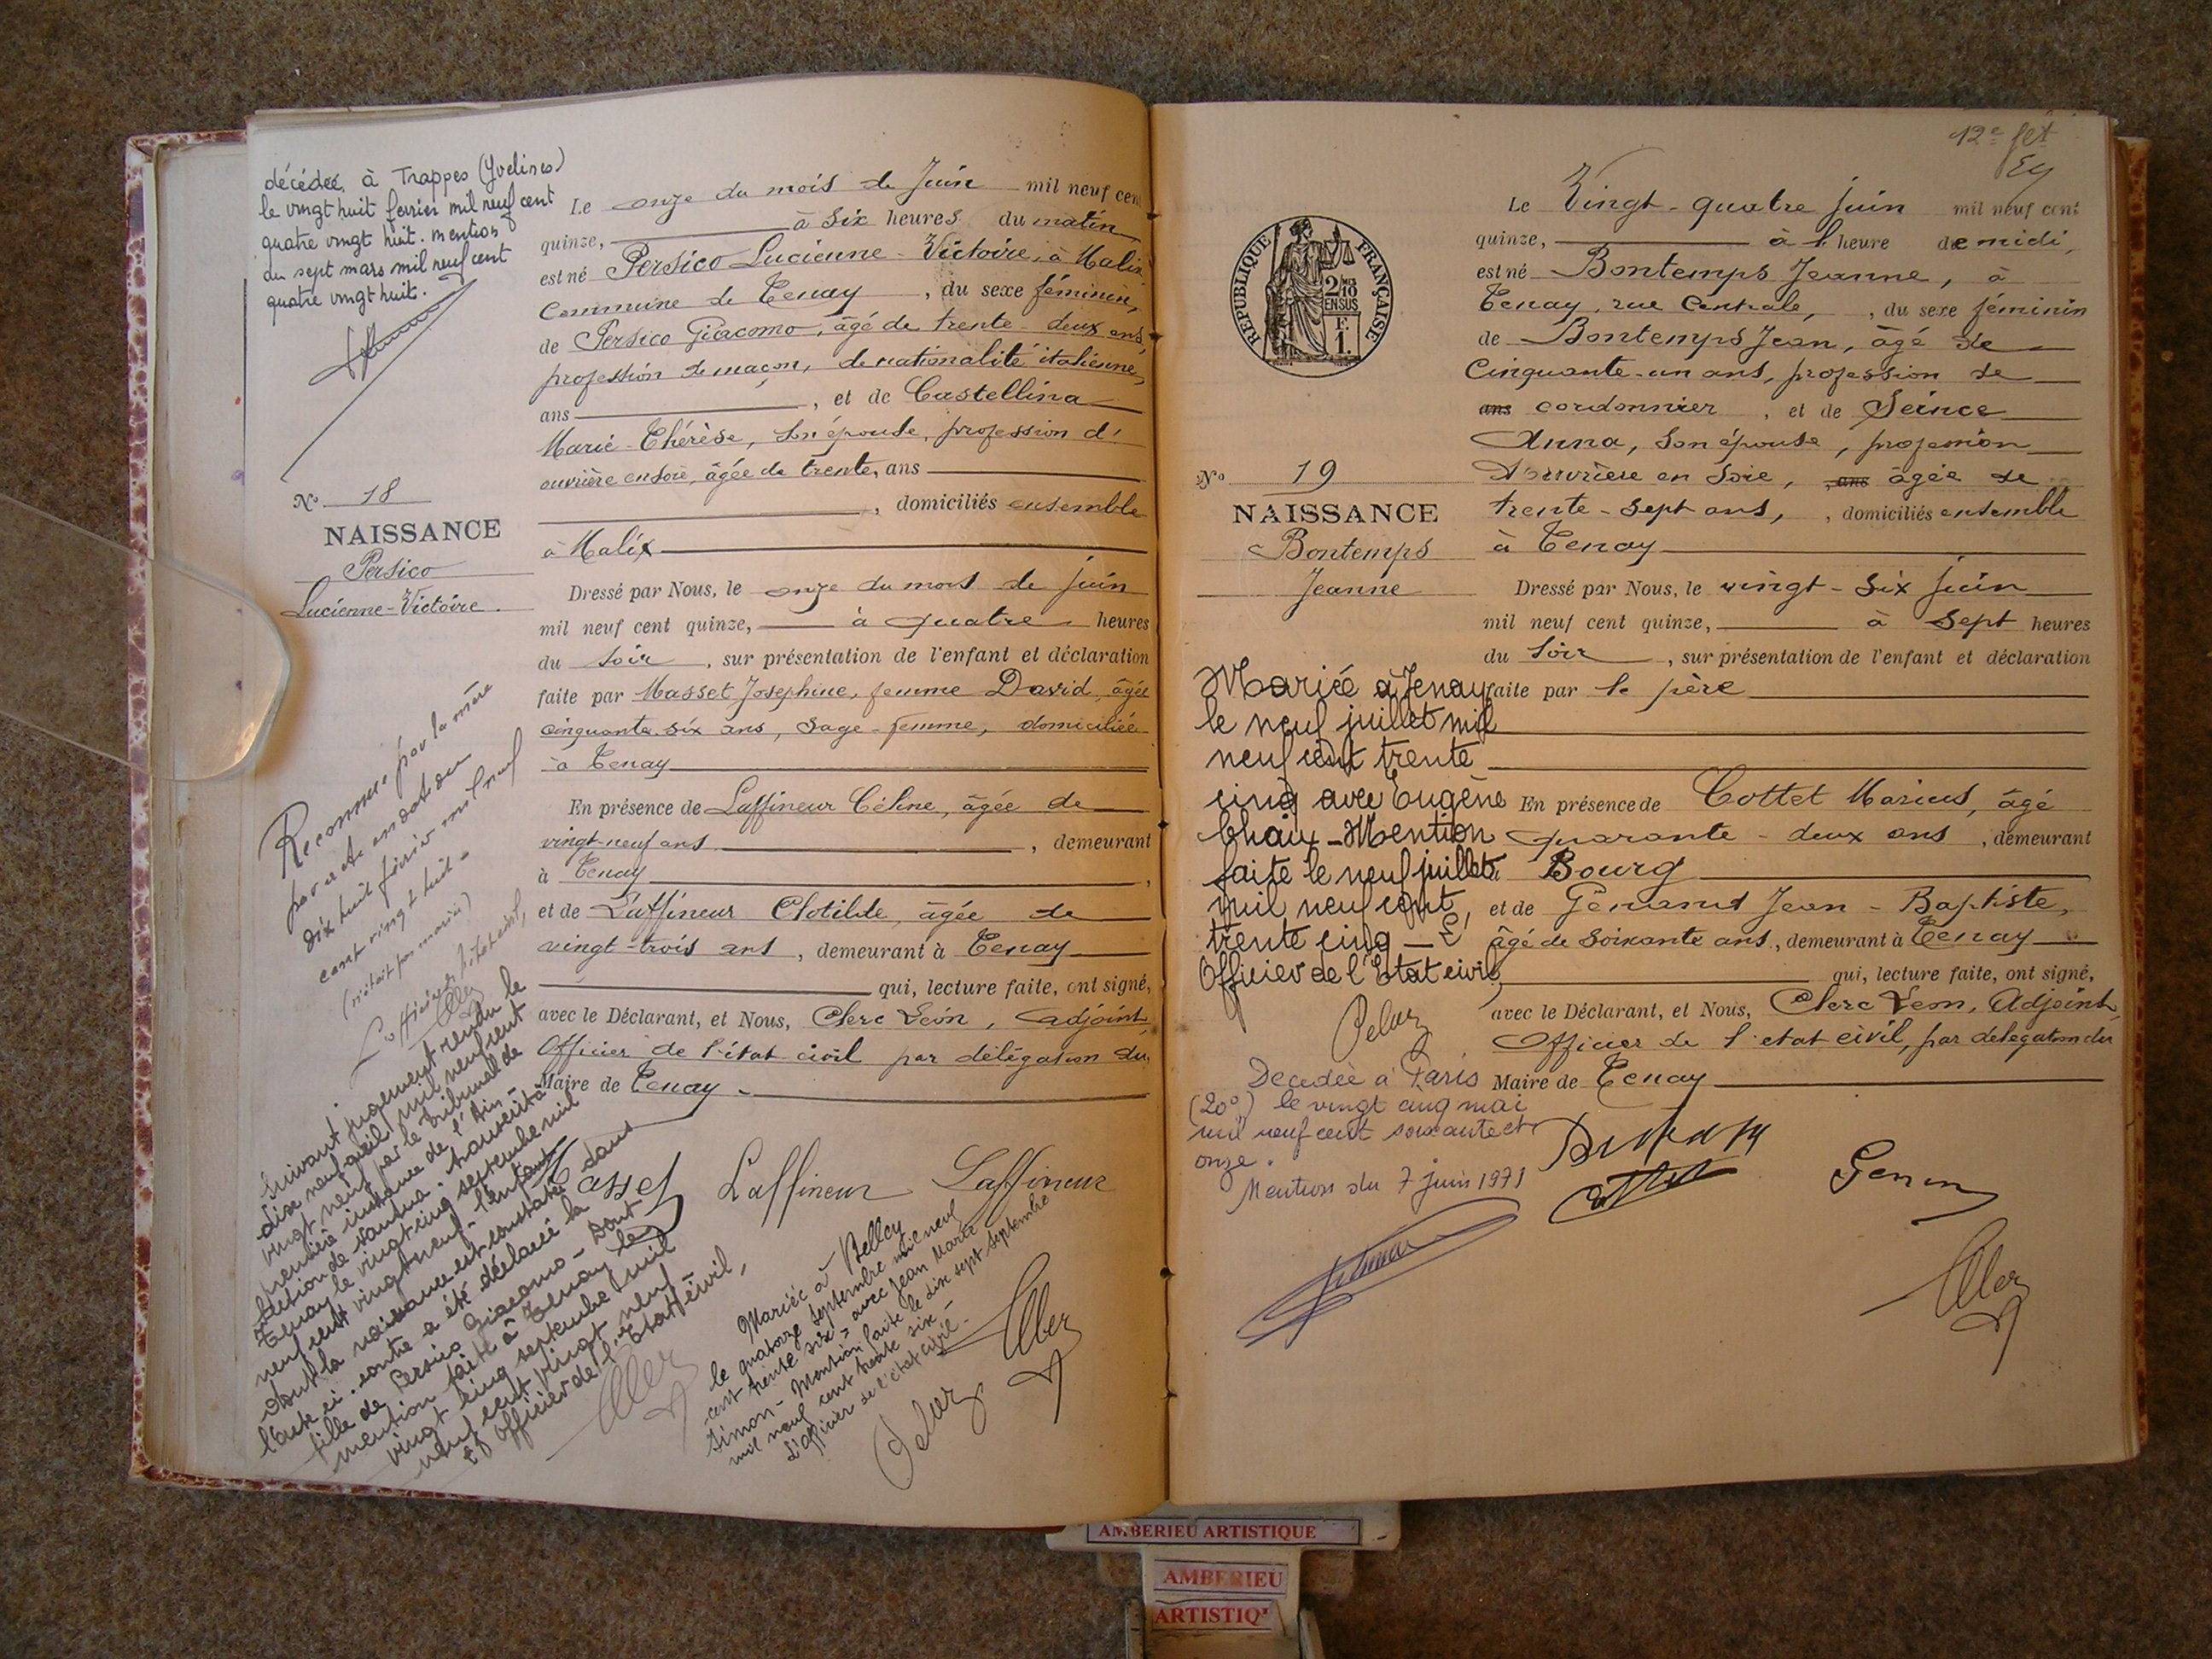 décédée, à Trappes (Yvelines)
le vingt huit février mil neuf cent
quatre vingt huit. mention
du sept mars mil neuf cent
quatre vingt huit.
N° 18
NAISSANCE
Persico
Lucienne-Victoire.
Reconnue par la mère
par acte en date du
dix huit février mil neuf
cent vingt huit -
(n'était pas mariée)
L'officier de l'état civil,
Suivant jugement rendu le
dix neuf avril mil neuf cent
vingt neuf par le tribunal de
première instance de l'Ain -
section de Nantua - transcrit à
Tenay le vingt cinq septembre mil
neuf cent vingt neuf - l'enfant
dont la naissance est constatée dans
l'acte ci-contre a été déclarée la
fille de Persico Giacomo - Dont
mention faite à Tenay le
vingt cinq septembre mil
neuf cent vingt neuf
L'officier de l'Etat civil,
Le onze du mois de Juin mil neuf cent
quinze, à six heures du matin
est né Persico Lucienne-Victoire, à Malix
commune de Tenay, du sexe féminin,
de Persico Giacomo, âgé de trente-deux ans,
profession de maçon, de nationalité italienne,
ans, et de Castellina
Marie-Thérèse, son épouse, profession d'
ouvrière en soie, âgée de trente, ans
, domiciliés ensemble
à Malix
Dressé par Nous, le onze du mois de juin
mil neuf cent quinze, à quatre heures
du soir, sur présentation de l'enfant et déclaration
faite par Masset Josephine, femme David, âgée
cinquante six ans, sage-femme, domiciliée
à Tenay
En présence de Laffineur Céline, âgée de
vingt-neuf ans, demeurant
à Tenay,
et de Laffineur Clotilde, âgée de
vingt-trois ans, demeurant à Tenay
qui, lecture faite, ont signé,
avec le Déclarant, et Nous, Clerc Léon, adjoint
Officier de l'état civil par délégation du
Maire de Tenay -
Masset Laffineur Laffineur
Mariée à Belley
le quatorze septembre mil neuf
cent trente six = avec Jean Marie
Simon - Mention faite le dix sept septembre
mil neuf cent trente six -
L'officier de l'état civil -
Clerc
12e f
REPUBLIQUE FRANÇAISE
2/10
EN SUS
F.
1.
N° 19
NAISSANCE
Bontemps
Jeanne
Le Vingt-quatre juin mil neuf cent
quinze, à 1 heure de midi,
est né Bontemps Jeanne, à
Tenay, rue Centrale, , du sexe féminin
de Bontemps Jean, âgé de
Cinquante-un ans, profession de
ans cordonnier, et de Seince
Anna, son épouse, profession
d'ouvrière en soie, , ans âgée de
trente-sept ans, , domiciliés ensemble
à Tenay
Dressé par Nous, le vingt-six juin
mil neuf cent quinze, à sept heures
du soir, sur présentation de l'enfant et déclaration
faite par le père
En présence de Cottet Marius, âgé
quarante-deux ans, demeurant
à Bourg
et de Jean-Baptiste,
âgé de soixante ans, demeurant à Tenay
qui, lecture faite, ont signé,
avec le Déclarant, et Nous, Clerc Léon, Adjoint
Officier de l'etat civil, par delegation du
Maire de Tenay
Mariée à Tenay
le neuf juillet mil
neuf cent trente
cinq avec Eugène
Chaix - Mention
faite le neuf juillet
mil neuf cent
trente cinq - L'
Officier de l'Etat civil,
Decedée à Paris
(20°) le vingt cinq mai
mil neuf cent soixante et
onze.
Mention du 7 juin 1971
Clerc
AMBERIEU ARTISTIQUE
AMBERIEU
ARTISTIQ